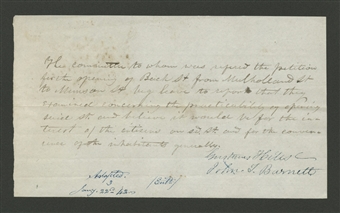 The committee to whom was refered the petition
for the opening of Back St from Mulholland St
to Munson St, beg leave to report that they
examined concerning the practicability of opening
said st and believe it would be for the in-
trest of the citizens on sd St and for the conveni-
ence of the inhabitants generally.
Hills
Peter G. Burnett
Adopted
3
Jany. 22d 42